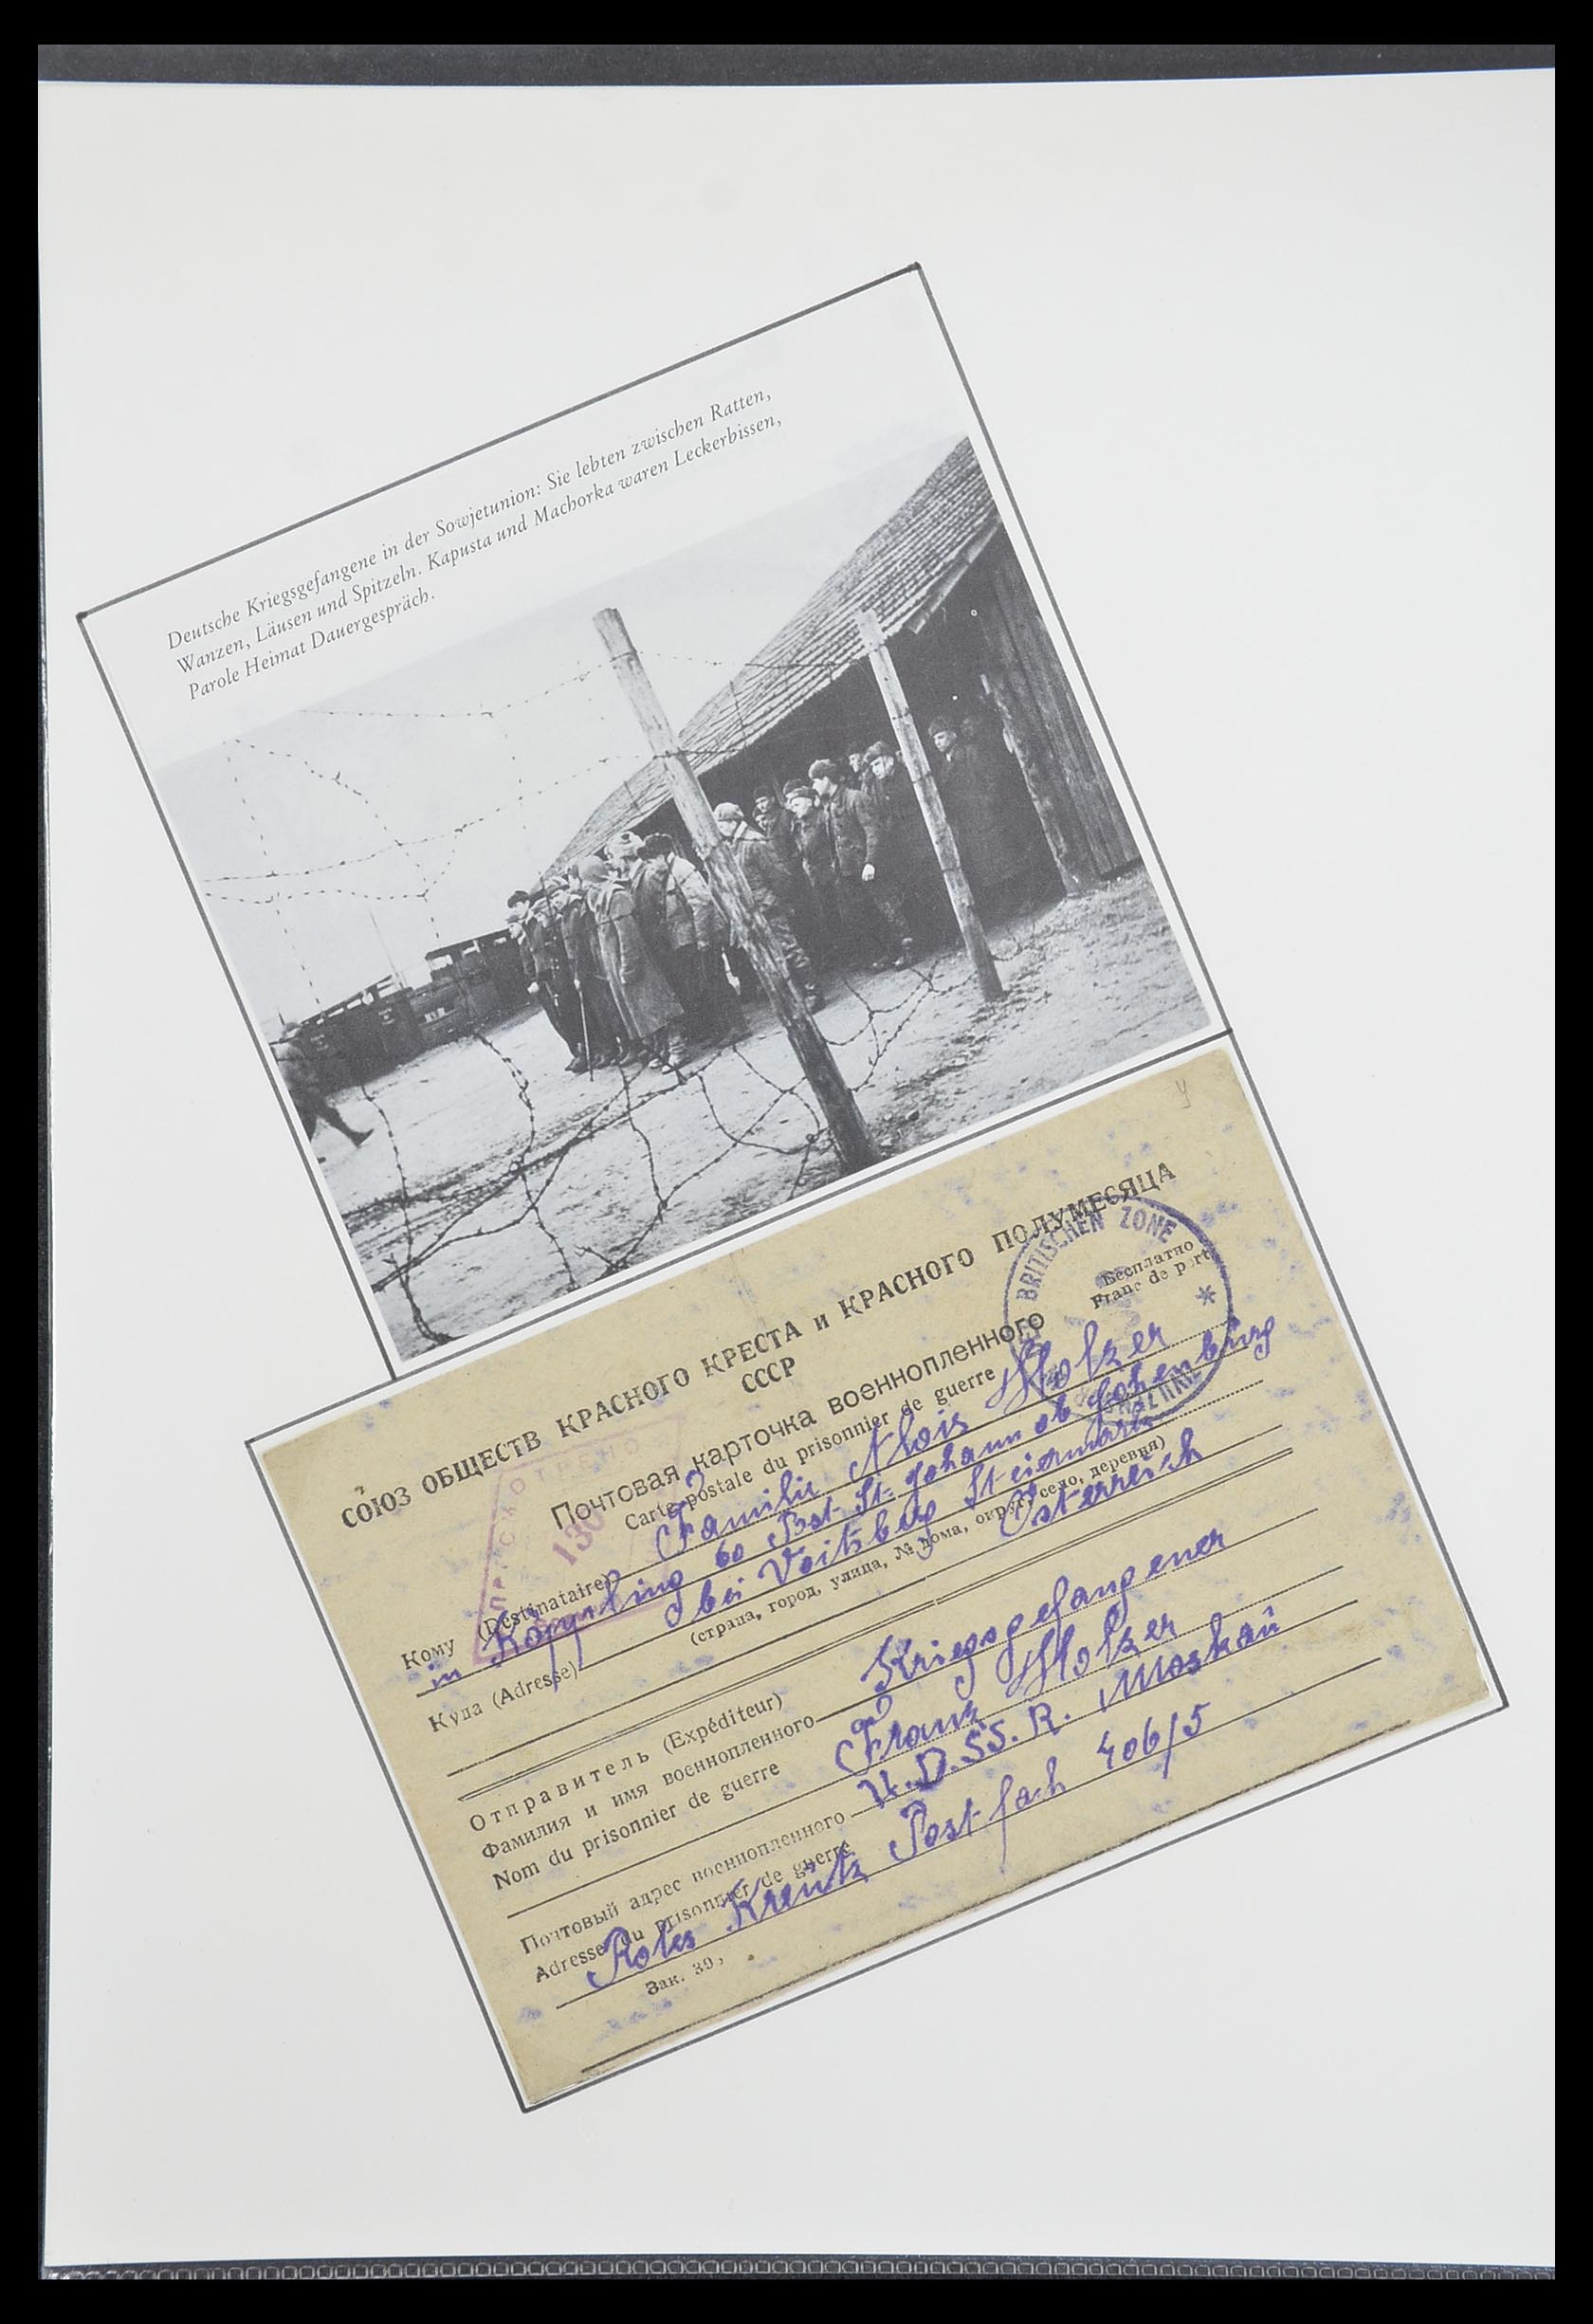 Deutsche Kriegsgefangene in der Sowjetunion: Sie lebten zwischen Ratten,
Wanzen, Läusen und Spitzeln. Kapusta und Machorka waren Leckerbissen,
Parole Heimat Dauergespräch.
СОЮЗ ОБЩЕСТВ КРАСНОГО КРЕСТА и КРАСНОГО ПОЛУМЕСЯЦА
СССР
BRITISCHEN ZONE
Бесплатно
Franc de port
Почтовая карточка военнопленного
Carte postale du prisonnier de guerre
130
Кому (Destinataire) Familie Alois Holzer
in Köppling 60 Post St. Johann ob Hohenburg
Куда (Adresse) bei Voitsberg Steiermark
(страна, город, улица, № дома, округ, село, деревня)
Österreich
Отправитель (Expéditeur)
Фамилия и имя военнопленного Kriegsgefangener
Nom du prisonnier de guerre
Franz Holzer
Почтовый адрес военнопленного U.D.SS.R. Moskau
Adresse du prisonnier de guerre
Rotes Kreutz Postfach 406/5
Зак. 39,